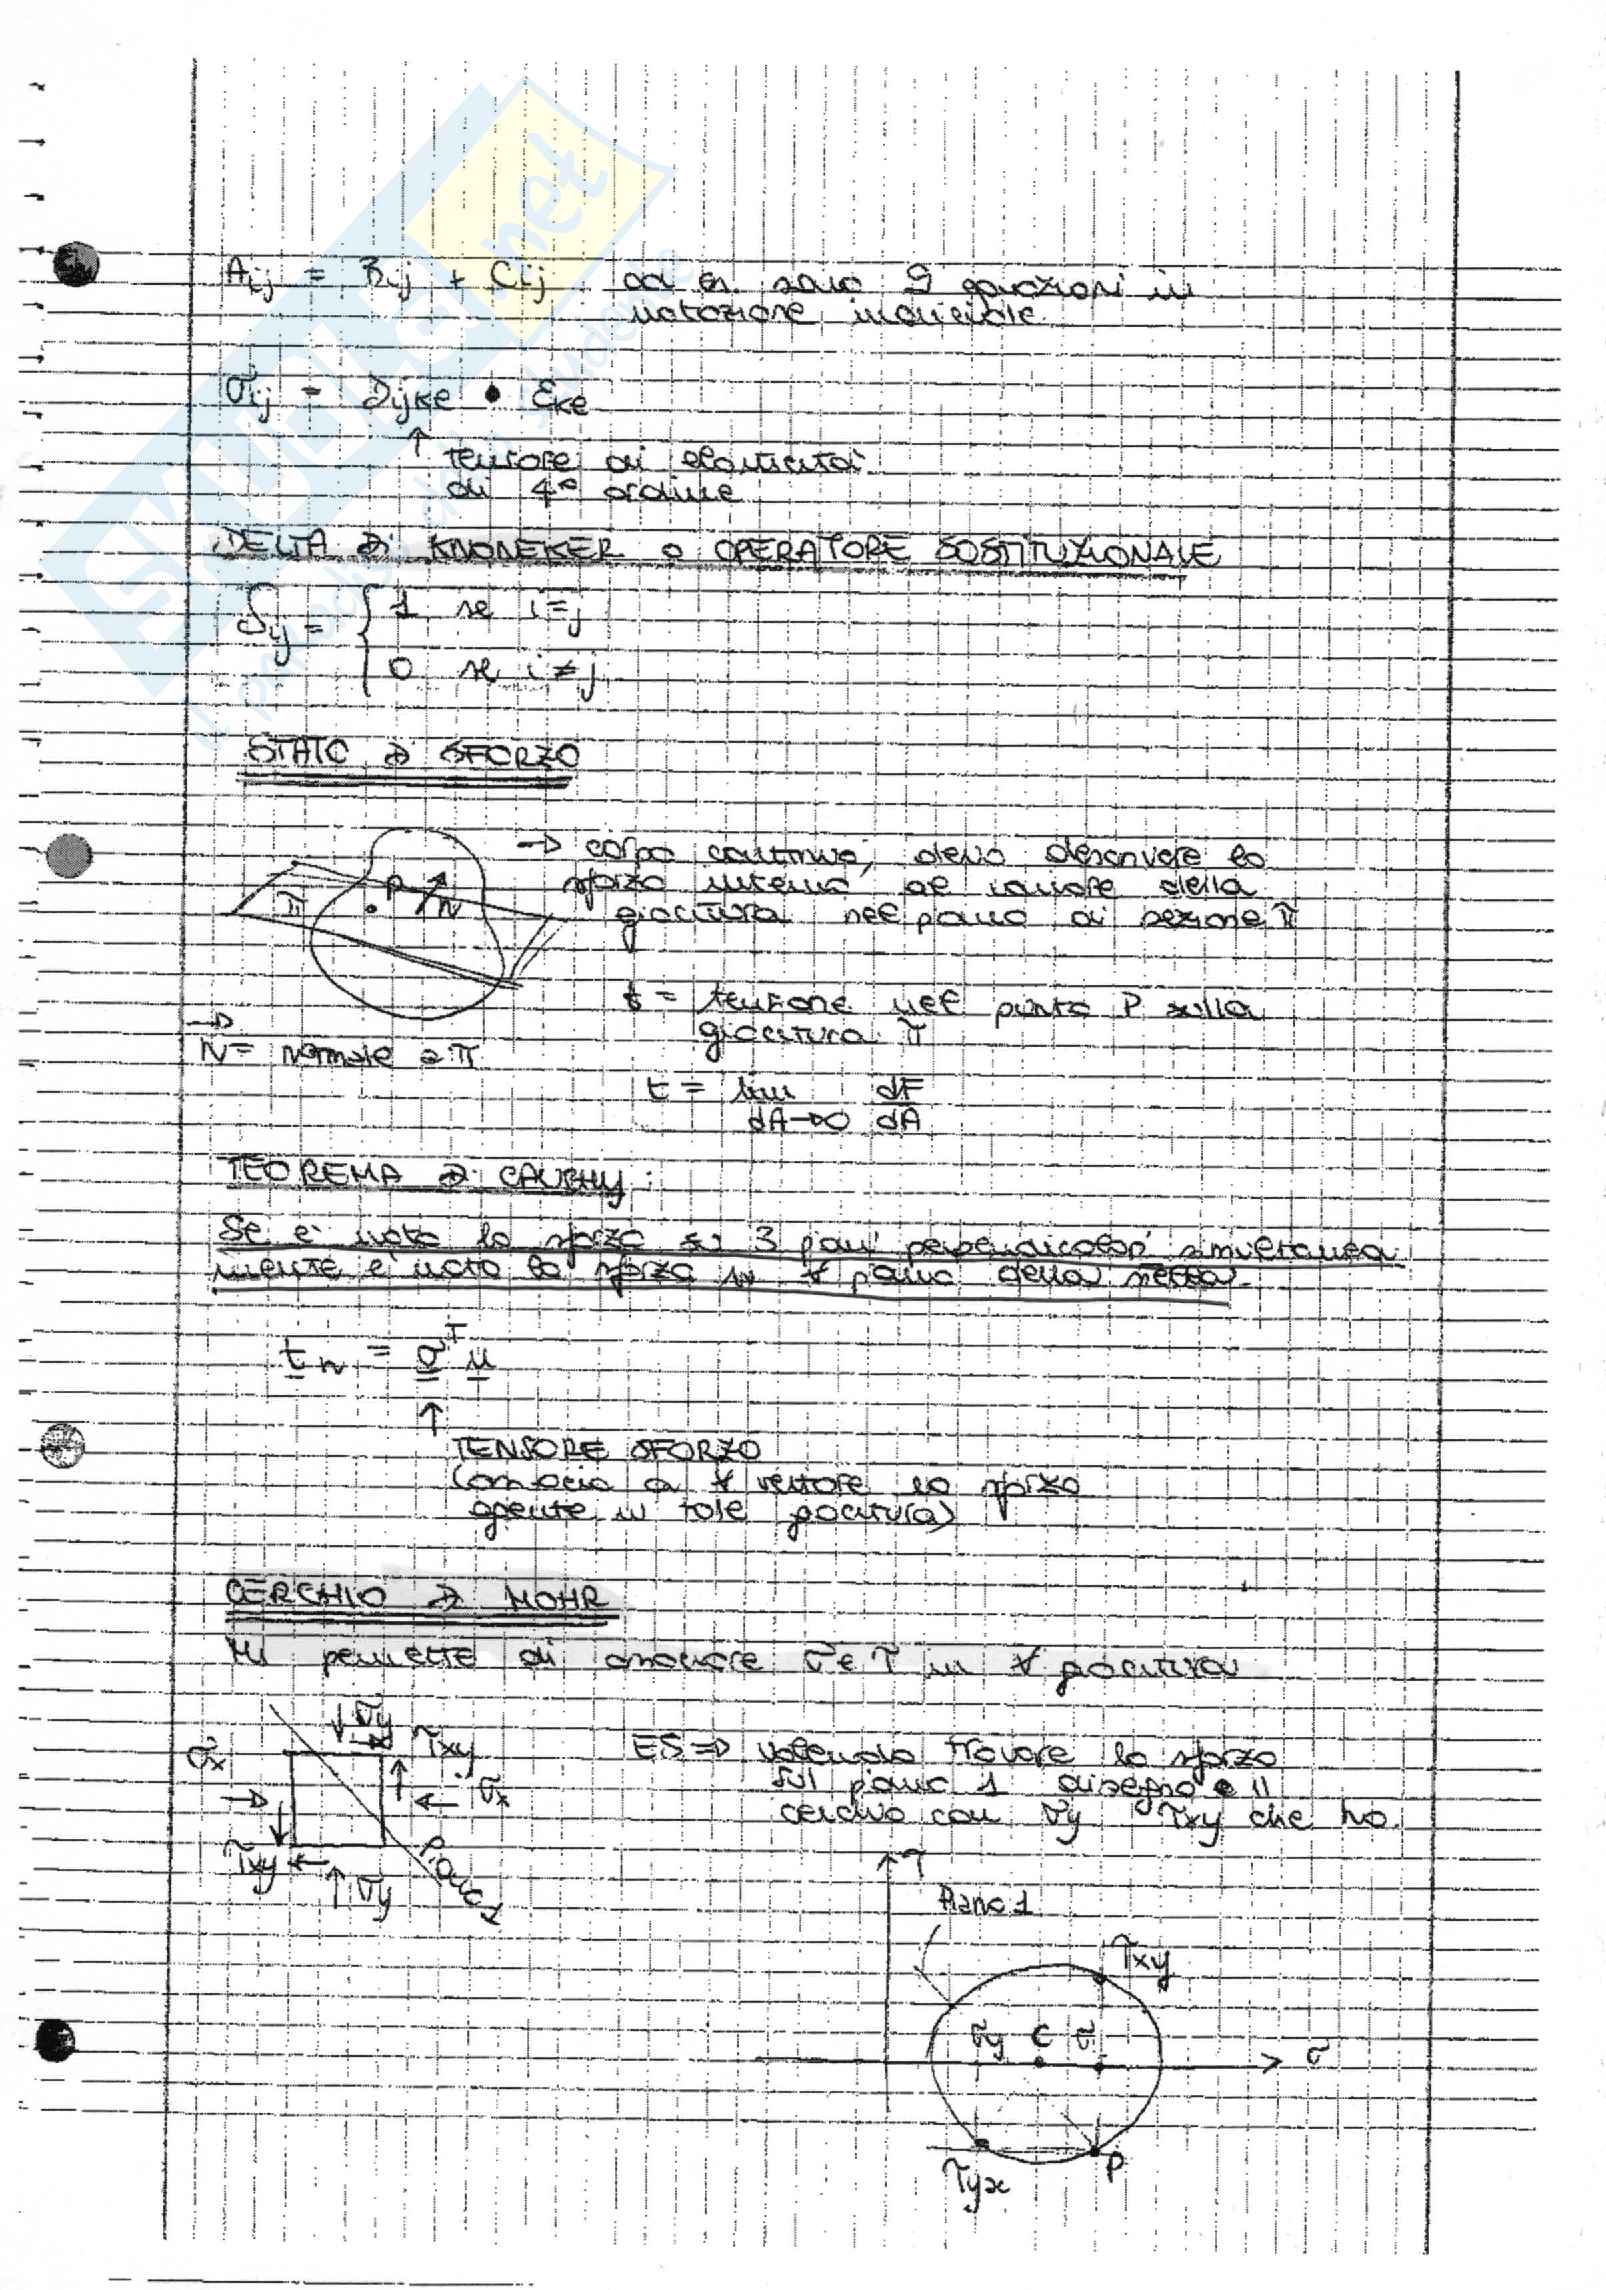 Aij = Bij + Cij ad es. sono 9 equazioni in
notazione indiciale
σij = Dijke • Eke
↑
tensore di elasticità
di 4° ordine
DELTA DI KRONEKER o OPERATORE SOSTITUZIONALE
δij = { 1 se i=j
0 se i≠j
STATO DI SFORZO
→ corpo continuo, devo descrivere lo
sforzo interno al variare della
giacitura nel piano di sezione π
π P n
t = tensione nel punto P sulla
giacitura π
N = normale a π
t = lim dF
dA→∞ dA
TEOREMA DI CAUCHY:
Se è noto lo sforzo su 3 piani perpendicolari simultanea
mente è noto lo sforzo in ∀ piano della stella
t n = σᵀ n
↑
TENSORE SFORZO
(associa a ∀ vettore lo sforzo
agente in tale giacitura)
CERCHIO DI MOHR
Mi permette di associare σ e τ in ∀ giacitura
σy
σx τxy
σx
τxy
σy
Piano 1
ES ⇒ volendo trovare lo sforzo
sul piano 1 disegno il
cerchio con σy τxy che ho
τ
Piano 1
τxy
σy C σ
σ
P
τyx
SKUOLA.net